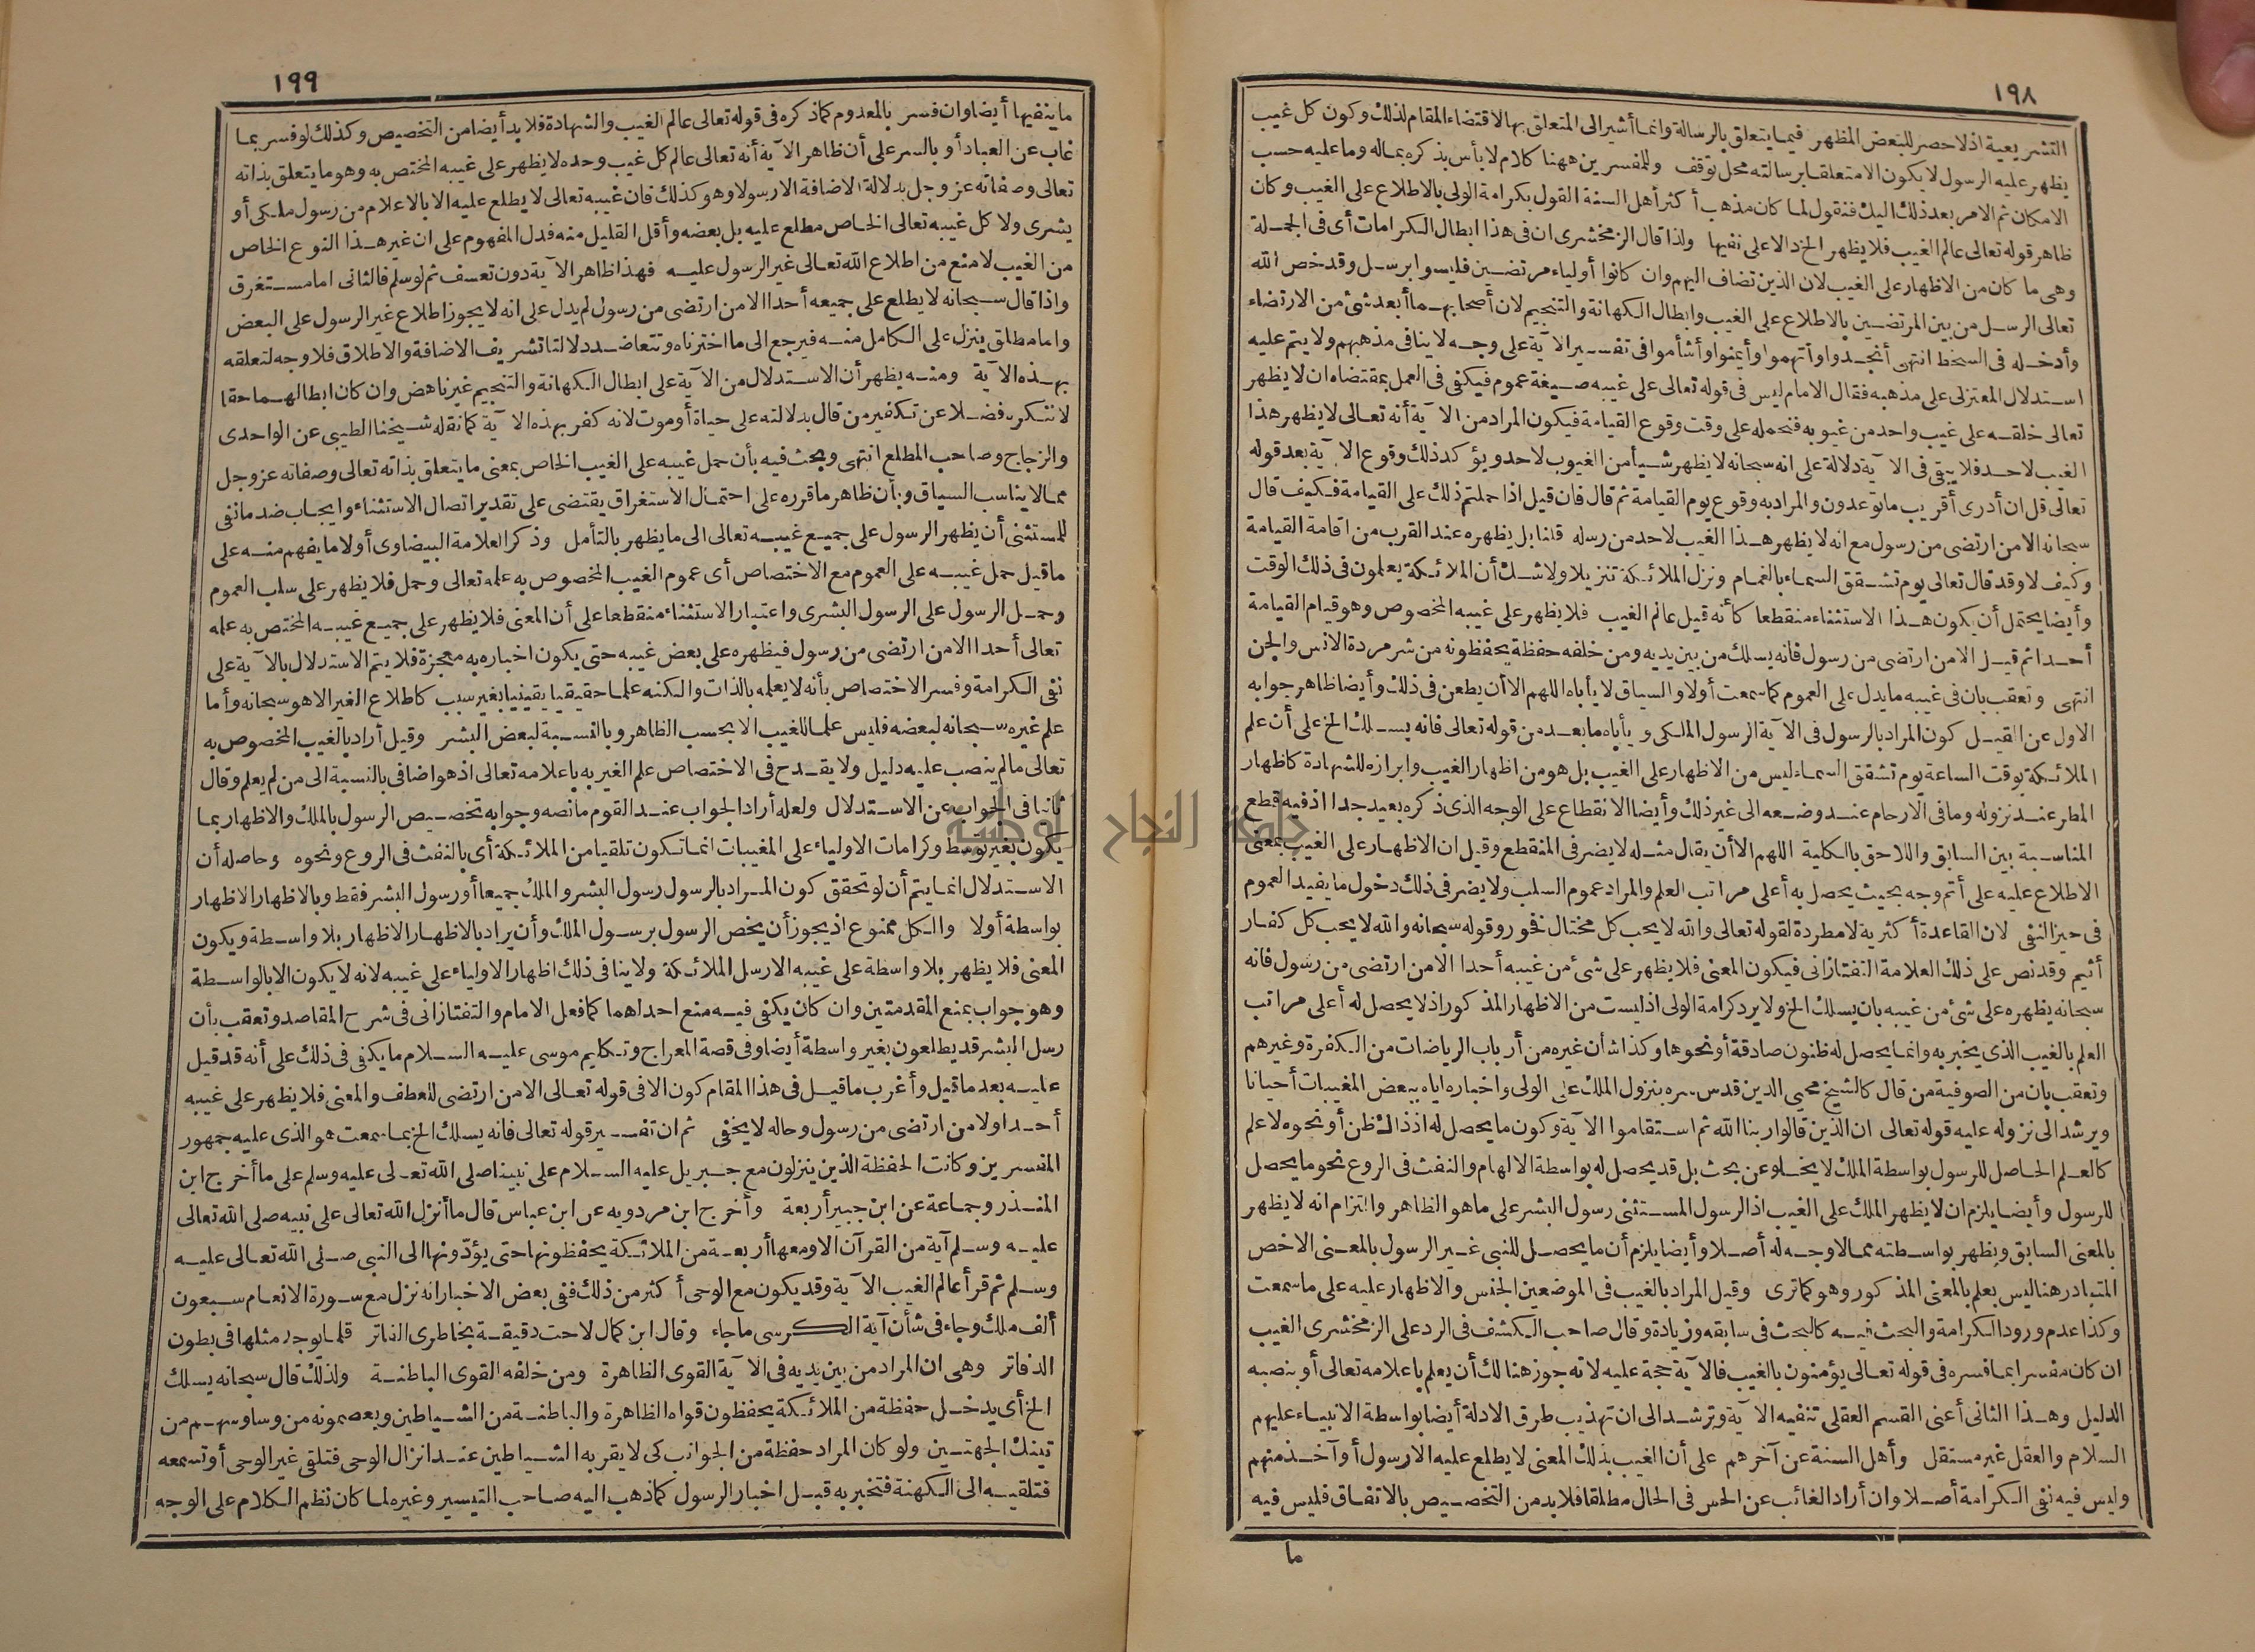 ١٩٨
التشريعية اذلا حصر للبعض المظهر فيما يتعلق بالرسالة وانما أشير الى المتعلق بها لاقتضاء المقام لذلك وكون كل غيب
يظهر عليه الرسول لا يكون الا متعلقا برسالته محل توقف وللمفسرين ههنا كلام لا بأس بذكره بماله وما عليه حسب
الامكان ثم الامر بعد ذلك اليك فنقول لما كان مذهب أكثر أهل السنة القول بكرامة الولى بالاطلاع على الغيب وكان
ظاهر قوله تعالى عالم الغيب فلا يظهر الخ دالا على نفيها ولذا قال الزمخشرى ان فى هذا ابطال الكرامات أى فى الجملة
وهى ما كان من الاظهار على الغيب لان الذين تضاف اليهم وان كانوا أولياء مرتضين فليسوا برسل وقد خص الله
تعالى الرسل من بين المرتضين بالاطلاع على الغيب وابطال الكهانة والتنجيم لان أصحابهما أبعد شئ من الارتضاء
وأدخله فى السخط انتهى أنجدوا وأتهموا وأيمنوا وأشأموا فى تفسير الآية على وجه لا ينافى مذهبهم ولا يتم عليه
استدلال المعتزلى على مذهبه فقال الامام ليس فى قوله تعالى على غيبه صيغة عموم فيكفى فى العمل بمقتضاه ان لا يظهر
تعالى خلقه على غيب واحد من غيوبه فنحمله على وقت وقوع القيامة فيكون المراد من الآية أنه تعالى لا يظهر هذا
الغيب لاحد فلا يبقى فى الآية دلالة على انه سبحانه لا يظهر شيأ من الغيوب لاحد ويؤكد ذلك وقوع الآية بعد قوله
تعالى قل ان أدرى أقريب ما توعدون والمراد به وقوع يوم القيامة ثم قال فان قيل اذا حملتم ذلك على القيامة فكيف قال
سبحانه الا من ارتضى من رسول مع انه لا يظهر هذا الغيب لاحد من رسله قلنا بل يظهره عند القرب من اقامة القيامة
وكيف لا وقد قال تعالى يوم تشقق السماء بالغمام ونزل الملائكة تنزيلا ولا شك أن الملائكة يعلمون فى ذلك الوقت
وأيضا يحتمل أن يكون هذا الاستثناء منقطعا كأنه قيل عالم الغيب فلا يظهر على غيبه المخصوص وهو قيام القيامة
أحدا ثم قيل الا من ارتضى من رسول فانه يسلك من بين يديه ومن خلفه حفظة يحفظونه من شر مردة الانس والجن
انتهى وتعقب بان فى غيبه ما يدل على العموم كما سمعت أولا والسياق لا يأباه اللهم الا أن يطعن فى ذلك وأيضا ظاهر جوابه
الاول عن القيل كون المراد بالرسول فى الآية الرسول الملكى ويأباه ما بعد من قوله تعالى فانه يسلك الخ على أن علم
الملائكة بوقت الساعة يوم تشقق السماء ليس من الاظهار على الغيب بل هو من اظهار الغيب وابرازه للشهادة كاظهار
المطر عند نزوله وما فى الارحام عند وضعه الى غير ذلك وأيضا الانقطاع على الوجه الذى ذكره بعيد جدا اذ فيه قطع
المناسبة بين السابق واللاحق بالكلية اللهم الا أن يقال مثله لا يضر فى المنقطع وقيل ان الاظهار على الغيب بمعنى
الاطلاع عليه على أتم وجه بحيث يحصل به أعلى مراتب العلم والمراد عموم السلب ولا يضر فى ذلك دخول ما يفيد العموم
فى حيز النفى لان القاعدة أكثرية لا مطردة لقوله تعالى والله لا يحب كل مختال فخور وقوله سبحانه والله لا يحب كل كفار
أثيم وقد نص على ذلك العلامة التفتازانى فيكون المعنى فلا يظهر على شئ من غيبه أحدا الا من ارتضى من رسول فانه
سبحانه يظهره على شئ من غيبه بان يسلك الخ ولا يرد كرامة الولى اذ ليست من الاظهار المذكور اذ لا يحصل له أعلى مراتب
العلم بالغيب الذى يخبر به وانما يحصل له ظنون صادقة أو نحوها وكذا شأن غيره من أرباب الرياضات من الكفرة وغيرهم
وتعقب بان من الصوفية من قال كالشيخ محيى الدين قدس سره بنزول الملك على الولى واخباره اياه ببعض المغيبات أحيانا
ويرشد الى نزوله عليه قوله تعالى ان الذين قالوا ربنا الله ثم استقاموا الآية وكون ما يحصل له اذ ذاك ظن أو نحوه لا علم
كالعلم الحاصل للرسول بواسطة الملك لا يخلو عن بحث بل قد يحصل له بواسطة الالهام والنفث فى الروع نحو ما يحصل
للرسول وأيضا يلزم ان لا يظهر الملك على الغيب اذ الرسول المستثنى رسول البشر على ما هو الظاهر والتزام انه لا يظهر
بالمعنى السابق ويظهر بواسطته مما لا وجه له أصلا وأيضا يلزم أن ما يحصل للنبى غير الرسول بالمعنى الاخص
المتبادر هنا ليس بعلم بالمعنى المذكور وهو كما ترى وقيل المراد بالغيب فى الموضعين الجنس والاظهار عليه على ما سمعت
وكذا عدم ورود الكرامة والبحث فيه كالبحث فى سابقه وزيادة وقال صاحب الكشف فى الرد على الزمخشرى الغيب
ان كان مفسرا بما فسره فى قوله تعالى يؤمنون بالغيب فالآية حجة عليه لانه جوز هنالك أن يعلم باعلامه تعالى أو بنصبه
الدليل وهذا الثانى أعنى القسم العقلى تنفيه الآية وترشد الى ان تهذيب طرق الادلة أيضا بواسطة الانبياء عليهم
السلام والعقل غير مستقل وأهل السنة عن آخرهم على أن الغيب بذلك المعنى لا يطلع عليه الا رسول أو آخذ منهم
وليس فيه نفى الكرامة أصلا وان أراد الغائب عن الحس فى الحال مطلقا فلا بد من التخصيص بالاتفاق فليس فيه
ما
١٩٩
ما ينفيها أيضا وان فسر بالمعدوم كما ذكره فى قوله تعالى عالم الغيب والشهادة فلا بد أيضا من التخصيص وكذلك لو فسر بما
غاب عن العباد أو بالسر على أن ظاهر الآية أنه تعالى عالم كل غيب وحده لا يظهر على غيبه المختص به وهو ما يتعلق بذاته
تعالى وصفاته عز وجل بدلالة الاضافة الا رسولا وهو كذلك فان غيبه تعالى لا يطلع عليه الا بالاعلام من رسول ملكى أو
بشرى ولا كل غيبه تعالى الخاص مطلع عليه بل بعضه وأقل القليل منه فدل المفهوم على ان غير هذا النوع الخاص
من الغيب لا منع من اطلاع الله تعالى غير الرسول عليه فهذا ظاهر الآية دون تعسف ثم لو سلم فالثانى اما مستغرق
واذا قال سبحانه لا يطلع على جميعه أحدا الا من ارتضى من رسول لم يدل على انه لا يجوز اطلاع غير الرسول على البعض
واما مطلق ينزل على الكامل منه فيرجع الى ما اخترناه وتتعاضد دلالتا تشريف الاضافة والاطلاق فلا وجه لتعلقه
بهذه الآية ومنه يظهر أن الاستدلال من الآية على ابطال الكهانة والتنجيم غير ناهض وان كان ابطالهما حقا
لا ننكره فضلا عن تكفير من قال بدلالته على حياة أو موت لانه كفر بهذه الآية كما نقله شيخنا الطيبى عن الواحدى
والزجاج وصاحب المطلع انتهى وبحث فيه بأن حمل غيبه على الغيب الخاص بمعنى ما يتعلق بذاته تعالى وصفاته عز وجل
مما لا يناسب السياق وبأن ظاهر ما قرره على احتمال الاستغراق يقتضى على تقدير اتصال الاستثناء وايجاب ضد ما نفى
للمستثنى أن يظهر الرسول على جميع غيبه تعالى الى ما يظهر بالتأمل وذكر العلامة البيضاوى أولا ما يفهم منه على
ما قيل حمل غيبه على العموم مع الاختصاص أى عموم الغيب المخصوص به علمه تعالى وحمل فلا يظهر على سلب العموم
وحمل الرسول على الرسول البشرى واعتبار الاستثناء منقطعا على أن المعنى فلا يظهر على جميع غيبه المختص به علمه
تعالى أحدا الا من ارتضى من رسول فيظهره على بعض غيبه حتى يكون اخباره به معجزة فلا يتم الاستدلال بالآية على
نفى الكرامة وفسر الاختصاص بأنه لا يعلمه بالذات والكنه علما حقيقيا يقينيا بغير سبب كاطلاع الغير الا هو سبحانه وأما
علم غيره سبحانه لبعضه فليس علما للغيب الا بحسب الظاهر وبالنسبة لبعض البشر وقيل أراد بالغيب المخصوص به
تعالى ما لم ينصب عليه دليل ولا يقدح فى الاختصاص علم الغير به باعلامه تعالى اذ هو اضافى بالنسبة الى من لم يعلم وقال
ثانيا فى الجواب عن الاستدلال ولعله أراد الجواب عند القوم ما نصه وجوابه تخصيص الرسول بالملك والاظهار بما
يكون بغير توسط وكرامات الاولياء على المغيبات انما تكون تلقيا من الملائكة أى بالنفث فى الروع ونحوه وحاصله أن
الاستدلال انما يتم أن لو تحقق كون المراد بالرسول رسول البشر والملك جميعا أو رسول البشر فقط وبالاظهار الاظهار
بواسطة أولا والكل ممنوع اذ يجوز أن يخص الرسول برسول الملك وأن يراد بالاظهار الاظهار بلا واسطة ويكون
المعنى فلا يظهر بلا واسطة على غيبه الا رسل الملائكة ولا ينافى ذلك اظهار الاولياء على غيبه لانه لا يكون الا بالواسطة
وهو جواب بمنع المقدمتين وان كان يكفى فيه منع احداهما كما فعل الامام والتفتازانى فى شرح المقاصد وتعقب بأن
رسل البشر قد يطلعون بغير واسطة أيضا وفى قصة المعراج وتكليم موسى عليه السلام ما يكفى فى ذلك على أنه قد قيل
عليه بعد ما قيل وأغرب ما قيل فى هذا المقام كون الا فى قوله تعالى الا من ارتضى للعطف والمعنى فلا يظهر على غيبه
أحدا ولا من ارتضى من رسول وحاله لا يخفى ثم ان تفسير قوله تعالى فانه يسلك الخ بما سمعت هو الذى عليه جمهور
المفسرين وكانت الحفظة الذين ينزلون مع جبريل عليه السلام على نبينا صلى الله تعالى عليه وسلم على ما أخرج ابن
المنذر وجماعة عن ابن جبير أربعة وأخرج ابن مردويه عن ابن عباس قال ما أنزل الله تعالى على نبيه صلى الله تعالى
عليه وسلم آية من القرآن الا ومعها أربعة من الملائكة يحفظونها حتى يؤدونها الى النبى صلى الله تعالى عليه
وسلم ثم قرأ عالم الغيب الآية وقد يكون مع الوحى أكثر من ذلك ففى بعض الاخبار انه نزل مع سورة الانعام سبعون
ألف ملك وجاء فى شأن آية الكرسى ما جاء وقال ابن كمال لاحت دقيقة بخاطرى الفاتر قلما يوجد مثلها فى بطون
الدفاتر وهى ان المراد من بين يديه فى الآية القوى الظاهرة ومن خلفه القوى الباطنة ولذلك قال سبحانه يسلك
الخ أى يدخل حفظة من الملائكة يحفظون قواه الظاهرة والباطنة من الشياطين ويعصمونه من وساوسهم من
تينك الجهتين ولو كان المراد حفظة من الجوانب كى لا يقربه الشياطين عند انزال الوحى فتلقى غير الوحى أو تسمعه
فتلقيه الى الكهنة فتخبر به قبل اخبار الرسول كما ذهب اليه صاحب التيسير وغيره لما كان نظم الكلام على الوجه
جامعة النجاح الوطنية